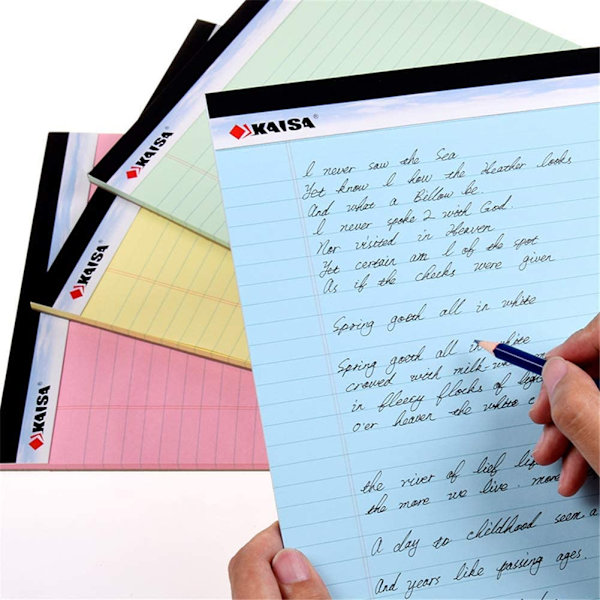 KAISA
KAISA
KAISA
KAISA
I never saw the Sea
Yet know I how the Heather looks
And what a Billow be
I never spoke 2 with God
Nor visited in Heaven
Yet certain am I of the spot
As if the checks were given
Spring goeth all in white
Spring goeth all in white
crowed with milk-w
in fleecy flocks of lig
o'er heaven the white c
the river of lief lig
the more we live, more
A day to childhood seem a
And years like passing ages.